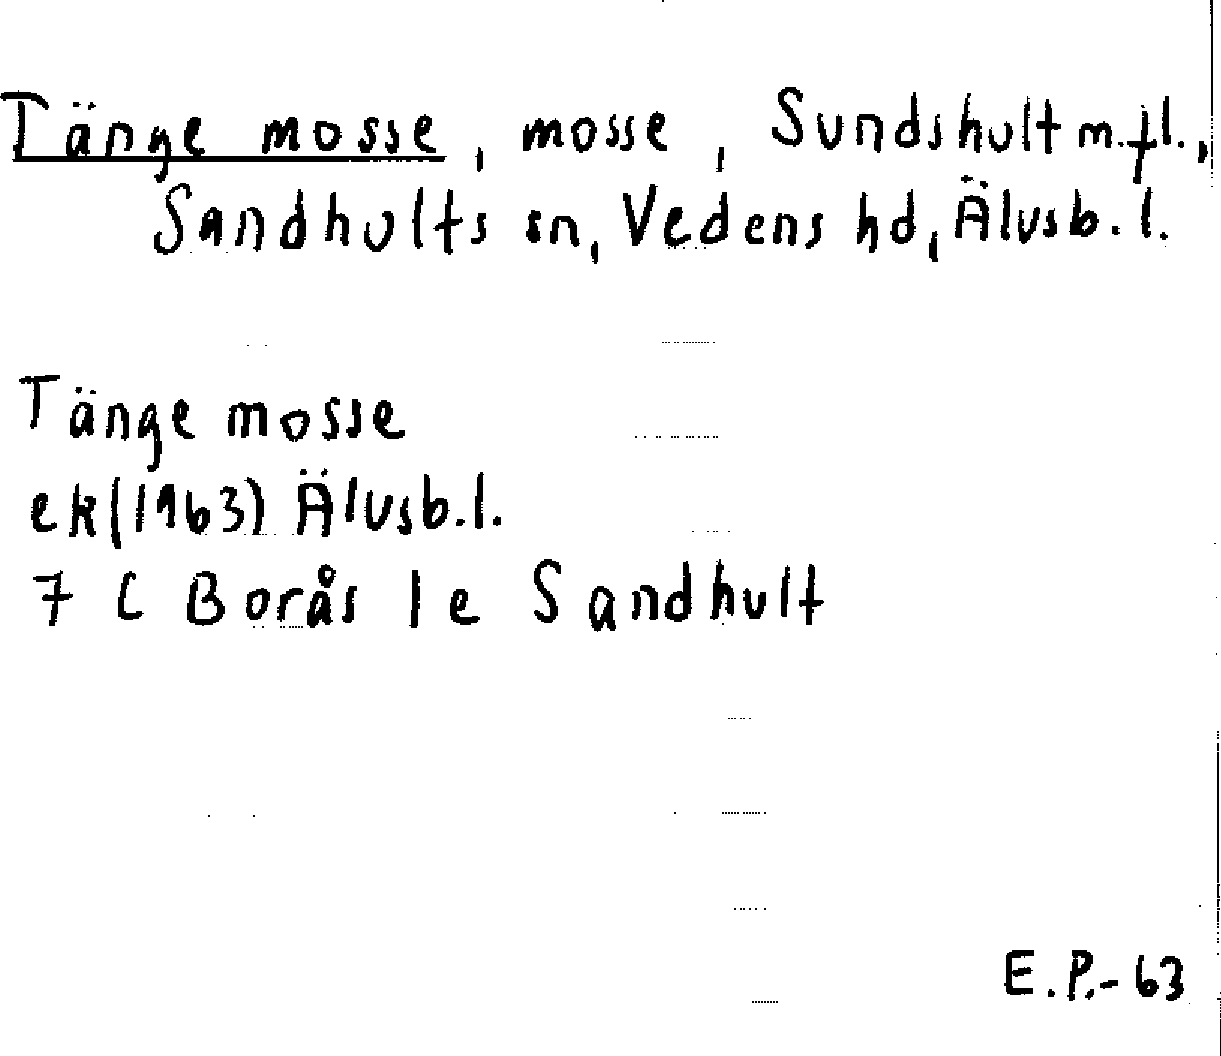 Tänge mosse, mosse, Sundshult m.fl.,
Sandhults sn, Vedens hd, Älvsb. l.
Tänge mosse
ek (1963) Älvsb. l.
7 C Borås 1 e Sandhult
E.P.-63